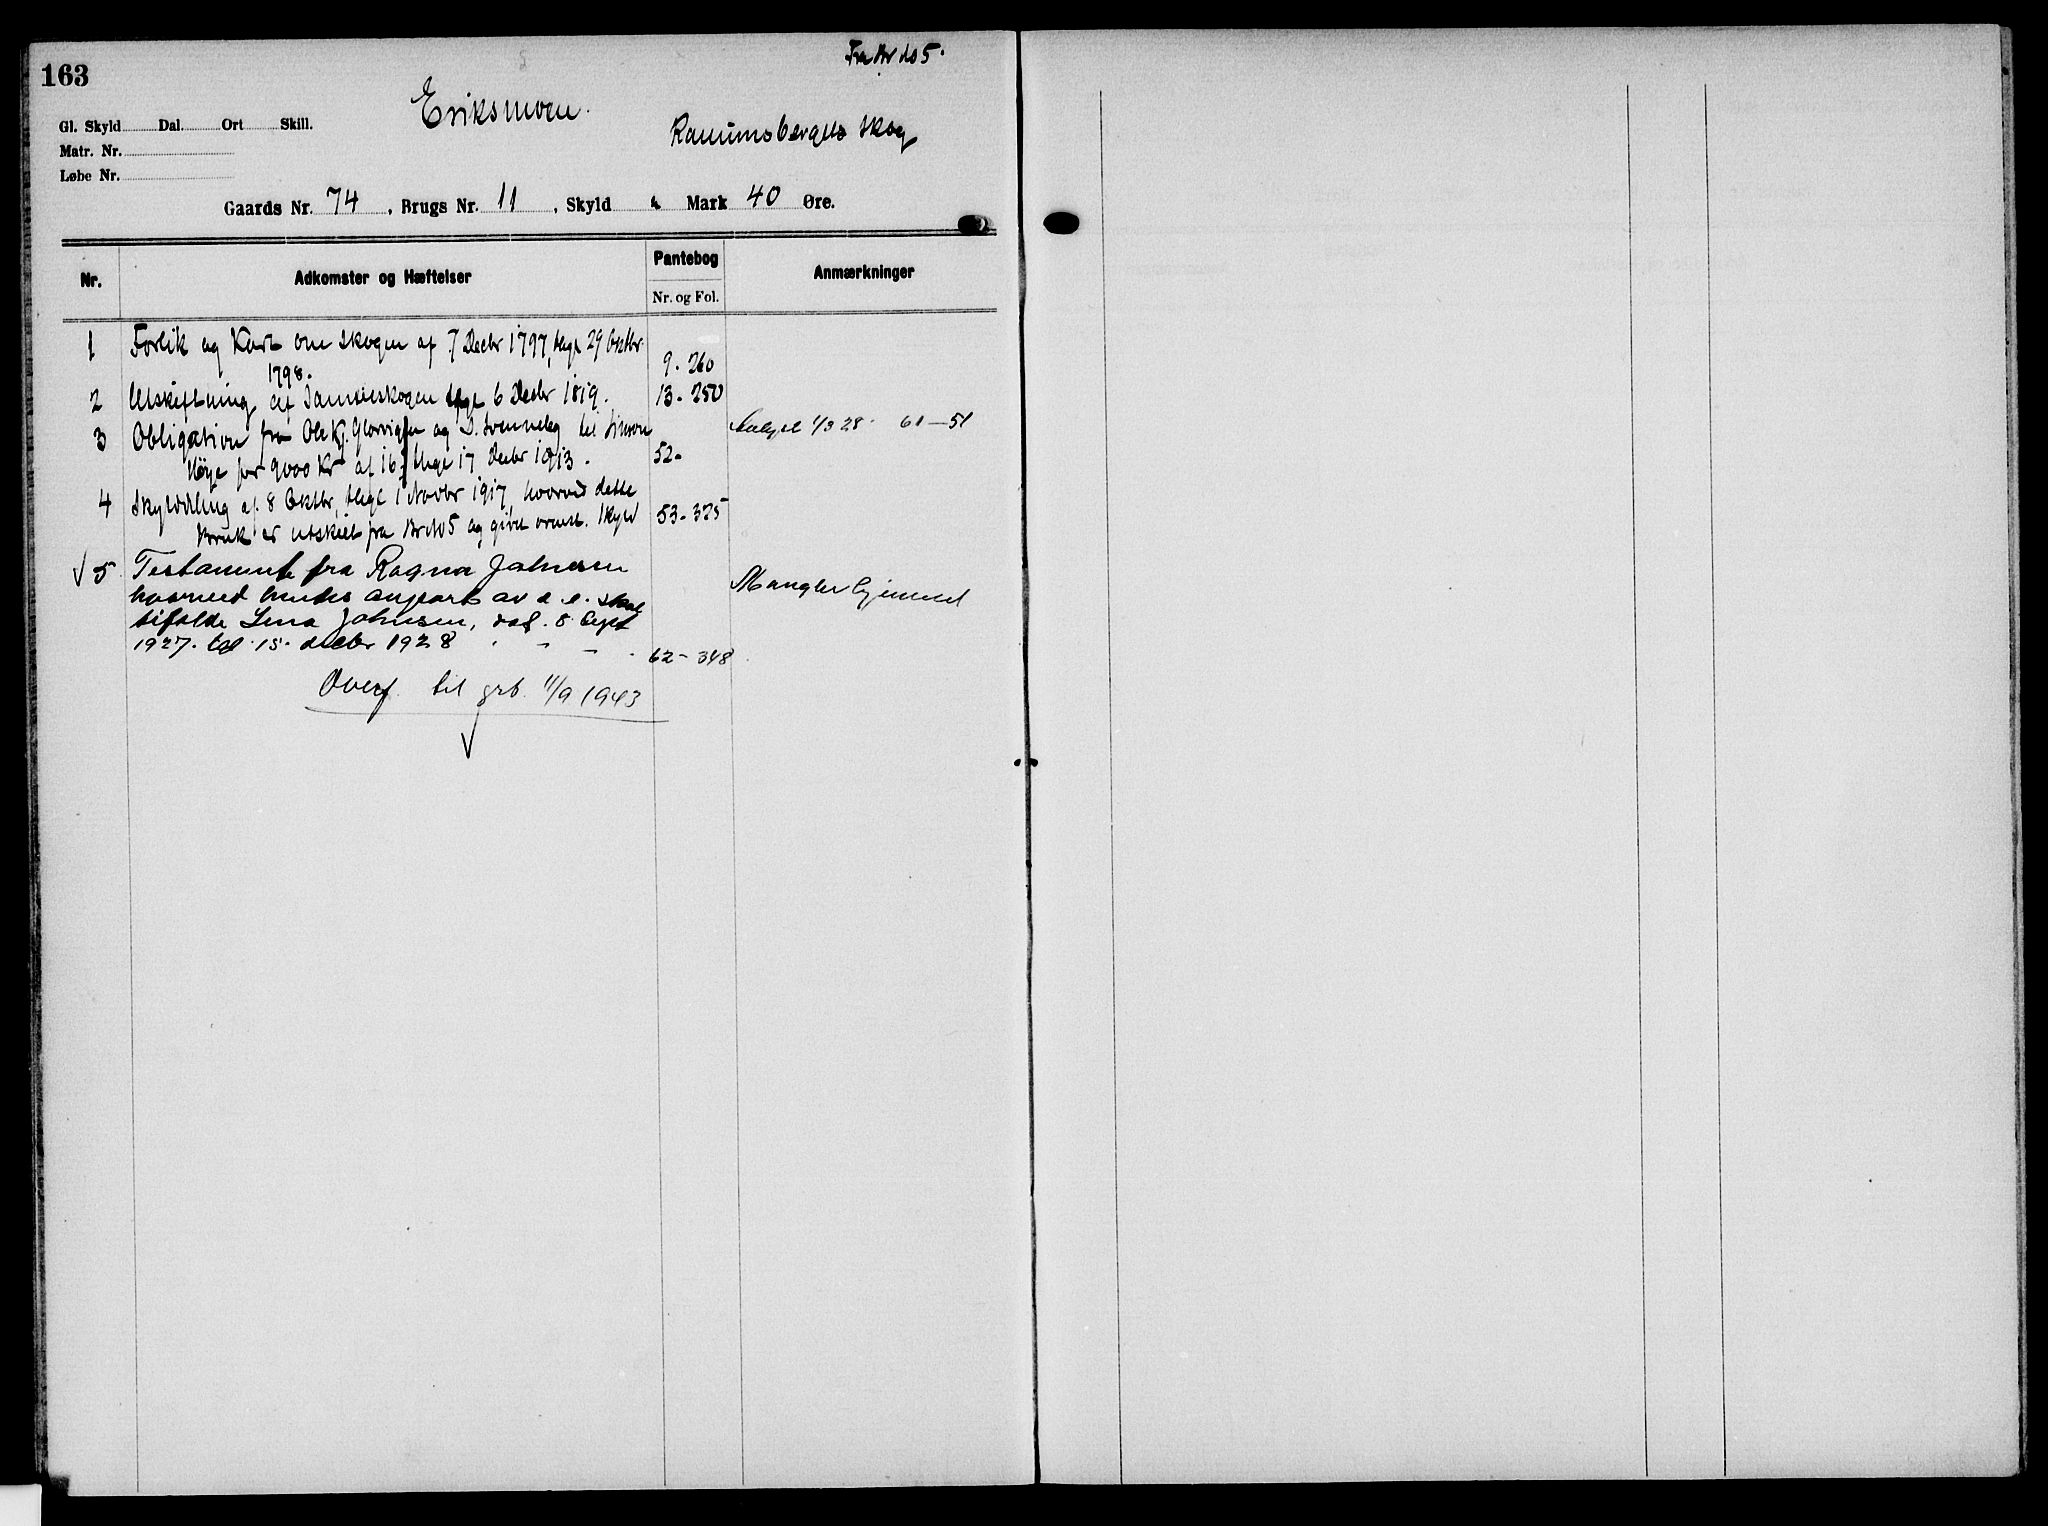 163
Fra Br No 5.
Eriksmoen.
Gl. Skyld Dal. Ort Skill.
Skog
Matr. Nr.
Løbe Nr.
Gaards Nr. 74, Brugs Nr. 11, Skyld Mark 40 Øre.
Nr. Adkomster og Hæftelser Pantebog Anmærkninger
Nr. og Fol.
1 Forlik og Kart om skogen af 7 Decbr 1797, thgl 29 Oktbr
1798. 9. 260
2 Utskiftning af Sameskogen thgl 6 Decbr 1819. 13. 250
3 Obligation fra Ole K. og D. til Simon Avlyst 1/3 28. 61-51
Höye for 9000 Kr af 16, thgl 17 Decbr 1913. 52-
4 Skylddeling af 8 Oktbr, thgl 1 Novbr 1917, hvorved dette
Bruk er utskilt fra Br No 5 og givet ovenst. Skyld 53-325
√ 5. Testamente fra Ragna Johnsen
hvorved hendes anpart av d. e. skal Mangler hjemmel
tilfalde Lena Johnsen, dat. 8. Sept
1927. tgl. 15. decbr 1928 62-348
Overf. til grb. 11/9 1943
√